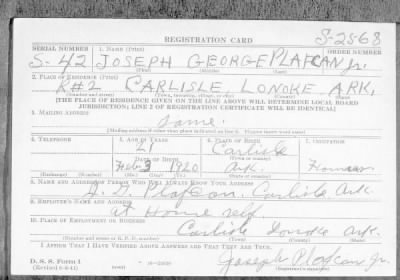 REGISTRATION CARD
S-2568
SERIAL NUMBER 1. NAME (Print) ORDER NUMBER
S-42 JOSEPH GEORGE PLAFCAN Jr.
(First) (Middle) (Last)
2. PLACE OF RESIDENCE (Print)
R#2 CARLISLE LONOKE ARK.
(Number and street) (Town, township, village, or city) (County) (State)
[THE PLACE OF RESIDENCE GIVEN ON THE LINE ABOVE WILL DETERMINE LOCAL BOARD
JURISDICTION; LINE 2 OF REGISTRATION CERTIFICATE WILL BE IDENTICAL]
3. MAILING ADDRESS
Same
[Mailing address if other than place indicated on line 2. If same insert word same]
4. TELEPHONE 5. AGE IN YEARS 6. PLACE OF BIRTH 7. OCCUPATION
21 Carlisle
DATE OF BIRTH (Town or county)
Feb 3 1920 Ark.
(Exchange) (Number) (Mo.) (Day) (Yr.) (State or country)
8. NAME AND ADDRESS OF PERSON WHO WILL ALWAYS KNOW YOUR ADDRESS
Plafcan, Carlisle Ark.
9. EMPLOYER'S NAME AND ADDRESS
at Home self
10. PLACE OF EMPLOYMENT OR BUSINESS
Carlisle Lonoke Ark
(Number and street or R. F. D. number) (Town) (County) (State)
I AFFIRM THAT I HAVE VERIFIED ABOVE ANSWERS AND THAT THEY ARE TRUE.
D. S. S. Form 1
Joseph Plafcan Jr.
(Registrant's signature)